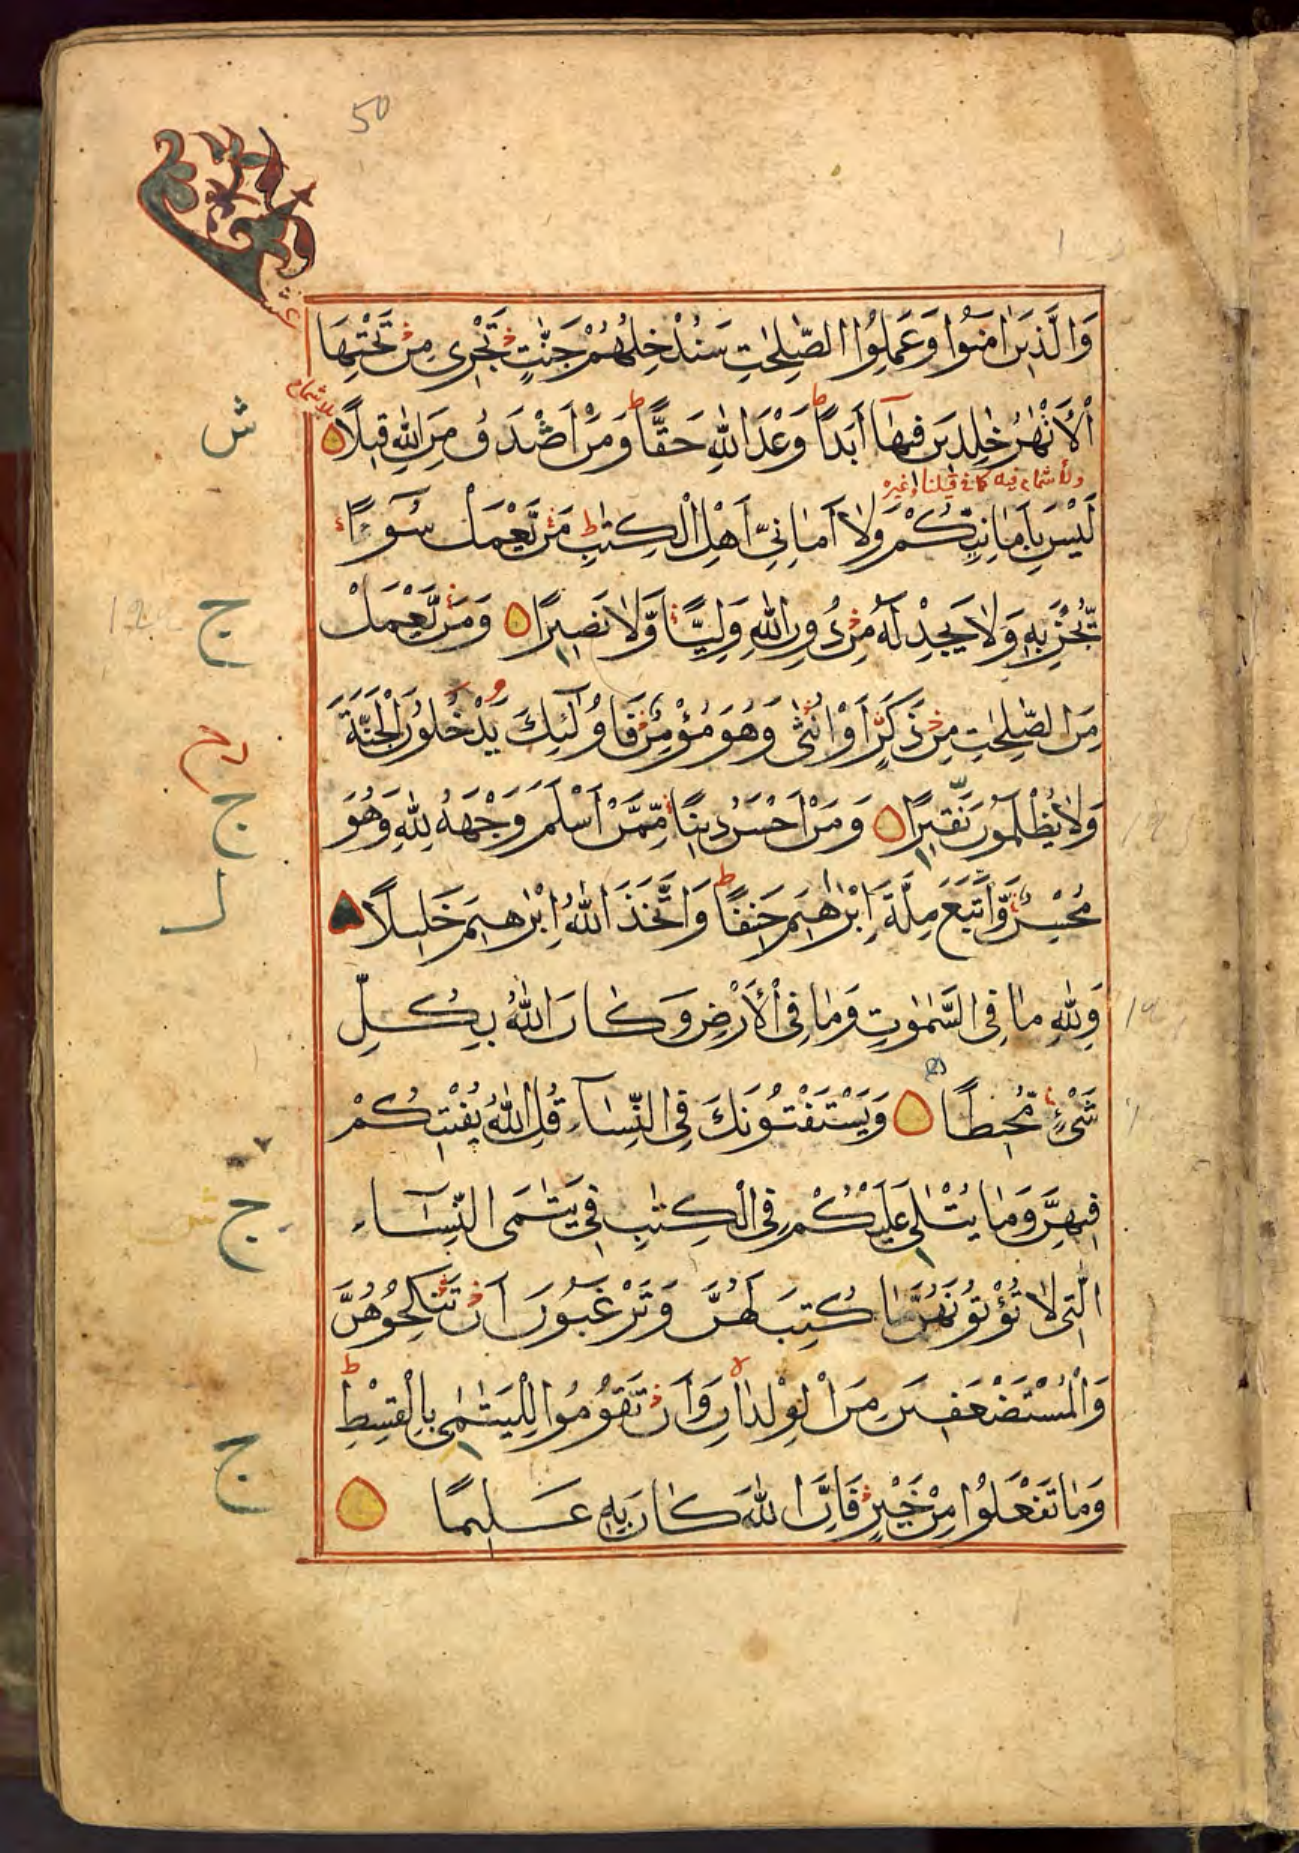 50
وَالَّذِينَ اٰمَنُوا وَعَمِلُوا الصّٰلِحٰتِ سَنُدْخِلُهُمْ جَنّٰتٍ تَجْرِى مِنْ تَحْتِهَا
الْأَنْهٰرُ خٰلِدِينَ فِيهَآ أَبَدًا ط وَعْدَ اللّٰهِ حَقًّا ط وَمَنْ أَصْدَقُ مِنَ اللّٰهِ قِيلًا
ش
لَيْسَ بِأَمَانِيِّكُمْ وَلَا أَمَانِيِّ أَهْلِ الْكِتٰبِ ط مَنْ يَّعْمَلْ سُوٓءًا
يُّجْزَ بِهِ وَلَا يَجِدْ لَهُ مِنْ دُونِ اللّٰهِ وَلِيًّا وَّلَا نَصِيرًا وَمَنْ يَّعْمَلْ
ج
مِنَ الصّٰلِحٰتِ مِنْ ذَكَرٍ أَوْ أُنْثٰى وَهُوَ مُؤْمِنٌ فَأُولٰٓئِكَ يَدْخُلُونَ الْجَنَّةَ
وَلَا يُظْلَمُونَ نَقِيرًا وَمَنْ أَحْسَنُ دِينًا مِّمَّنْ أَسْلَمَ وَجْهَهُ لِلّٰهِ وَهُوَ
ج
مُحْسِنٌ وَّاتَّبَعَ مِلَّةَ إِبْرٰهِيمَ حَنِيفًا ط وَاتَّخَذَ اللّٰهُ إِبْرٰهِيمَ خَلِيلًا
وَلِلّٰهِ مَا فِى السَّمٰوٰتِ وَمَا فِى الْأَرْضِ وَكَانَ اللّٰهُ بِكُلِّ
شَىْءٍ مُّحِيطًا وَيَسْتَفْتُونَكَ فِى النِّسَآءِ قُلِ اللّٰهُ يُفْتِيكُمْ
فِيهِنَّ وَمَا يُتْلٰى عَلَيْكُمْ فِى الْكِتٰبِ فِى يَتٰمَى النِّسَآءِ
ج
الّٰتِى لَا تُؤْتُونَهُنَّ مَا كُتِبَ لَهُنَّ وَتَرْغَبُونَ أَنْ تَنْكِحُوهُنَّ
وَالْمُسْتَضْعَفِينَ مِنَ الْوِلْدَانِ لا وَأَنْ تَقُومُوا لِلْيَتٰمٰى بِالْقِسْطِ ط
ج
وَمَا تَفْعَلُوا مِنْ خَيْرٍ فَإِنَّ اللّٰهَ كَانَ بِهِ عَلِيمًا